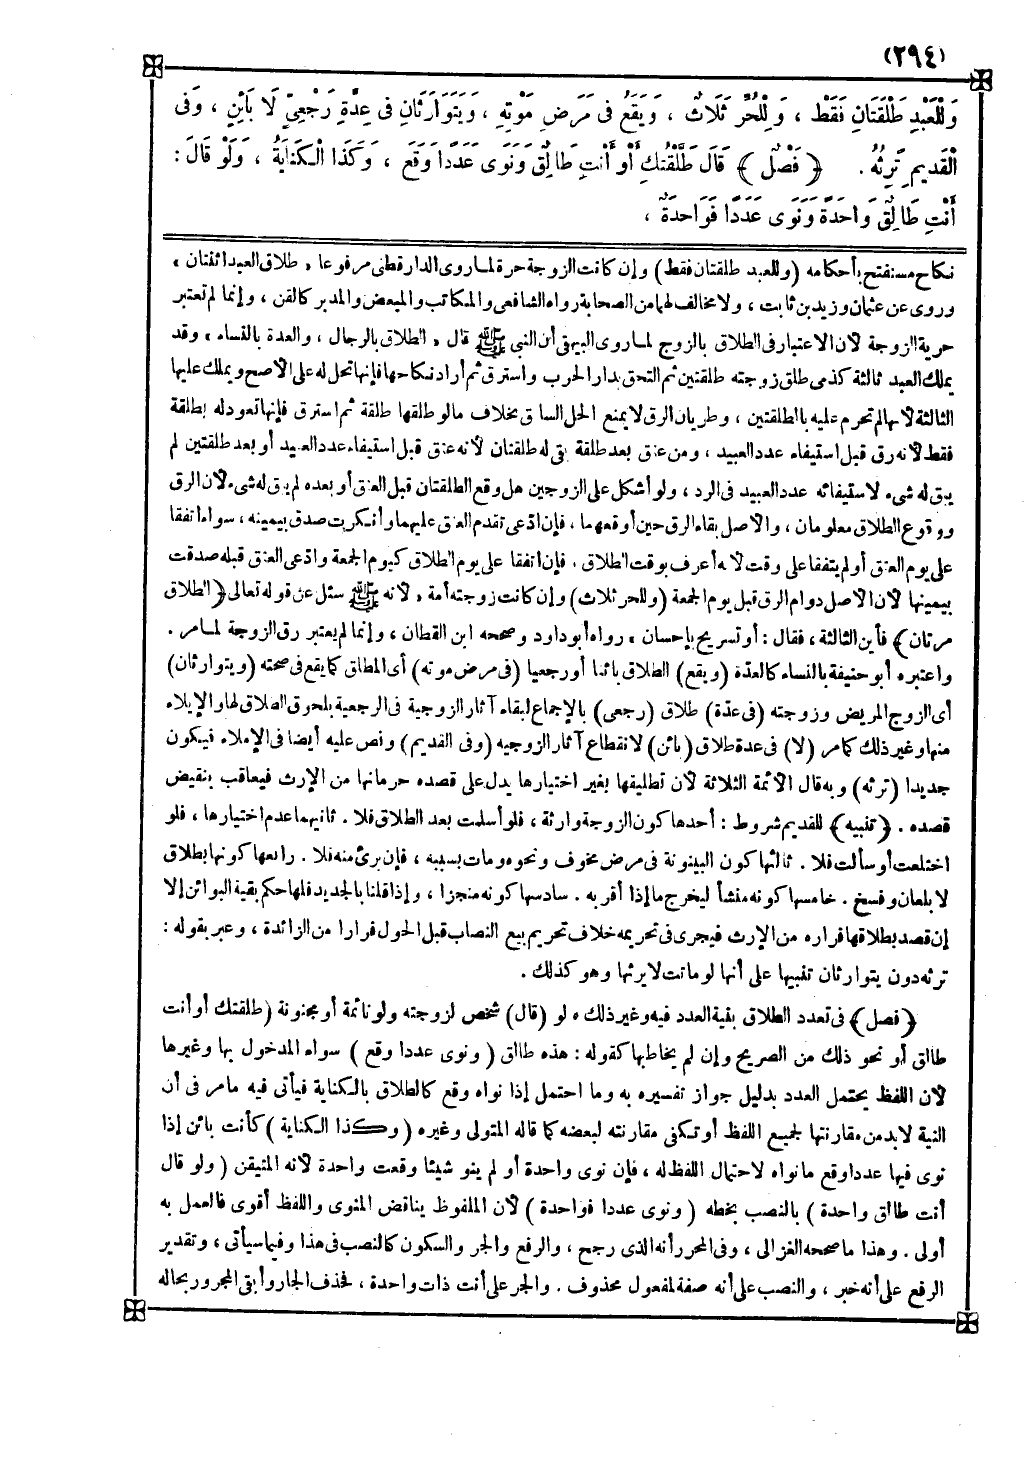 (٢٩٤)
وَلِلْعَبْدِ طَلْقَتَانِ فَقَطْ ، وَلِلْحُرِّ ثَلَاثٌ ، وَيَقَعُ فى مَرَضِ مَوْتِهِ ، وَيَتَوَارَثَانِ فى عِدَّةِ رَجْعِىٍّ لَا بَائِنٍ ، وَفى
الْقَدِيمِ تَرِثُهُ . ﴿ فَصْلٌ ﴾ قَالَ طَلَّقْتُكِ أَوْ أَنْتِ طَالِقٌ وَنَوَى عَدَدًا وَقَعَ ، وَكَذَا الْكِنَايَةُ ، وَلَوْ قَالَ :
أَنْتِ طَالِقٌ وَاحِدَةً وَنَوَى عَدَدًا فَوَاحِدَةٌ ،
نكاح مستفتح بأحكامه (وللعبد طلقتان فقط) وإن كانت الزوجة حرة لما روى الدارقطنى مرفوعا « طلاق العبد اثنتان »
وروى عن عثمان وزيد بن ثابت ، ولا مخالف لهما من الصحابة رواه الشافعى والمكاتب والمبعض والمدبر كالقن ، وإنما لم تعتبر
حرية الزوجة لأن الاعتبار فى الطلاق بالزوج لما روى البيهقى أن النبى ﷺ قال « الطلاق بالرجال ، والعدة بالنساء » وقد
يملك العبد ثالثة كذمى طلق زوجته طلقتين ثم التحق بدار الحرب واسترق ثم أراد نكاحها فإنها تحل له على الأصح ويملك عليها
الثالثة لأنها لم تحرم عليه بالطلقتين ، وطريان الرق لا يمنع الحل السابق بخلاف ما لو طلقها طلقة ثم استرق فإنها تعود له بطلقة
فقط لأنه رق قبل استيفاء عدد العبيد ، ومن عتق بعد طلقة بقى له طلقتان لأنه عتق قبل استيفاء عدد العبيد أو بعد طلقتين لم
يبق له شىء لاستيفائه عدد العبيد فى الرد ، ولو أشكل على الزوجين هل وقع الطلقتان قبل العتق أو بعده لم يبق له شىء لأن الرق
ووقوع الطلاق معلومان ، والأصل بقاء الرق حين أوقعهما ، فإن ادّعى تقدم العتق عليهما وأنكرت صدق بيمينه ، سواء اتفقا
على يوم العتق أو لم يتفقا على وقت لأنه أعرف بوقت الطلاق . فإن اتفقا على يوم الطلاق كيوم الجمعة وادّعى العتق قبله صدقت
بيمينها لأن الأصل دوام الرق قبل يوم الجمعة (وللحر ثلاث) وإن كانت زوجته أمة ، لأنه ﷺ سئل عن قوله تعالى ﴿ الطلاق
مرتان ﴾ فأين الثالثة ، فقال : أو تسريح بإحسان » رواه أبو داود وصححه ابن القطان ، وإنما لم يعتبر رق الزوجة لما مر .
واعتبره أبو حنيفة بالنساء كالعدّة (ويقع) الطلاق بائنا أو رجعيا (فى مرض موته) أى المطلق كما يقع فى صحته (ويتوارثان)
أى الزوج المريض وزوجته (فى عدّة) طلاق (رجعى) بالإجماع لبقاء آثار الزوجية فى الرجعية بلحوق الطلاق لها والإيلاء
منها وغير ذلك كما مر (لا) فى عدة طلاق (بائن) لانقطاع آثار الزوجيه (وفى القديم) ونص عليه أيضا فى الإملاء فيكون
جديدا (ترثه) وبه قال الأئمة الثلاثة لأن تطليقها بغير اختيارها يدل على قصده حرمانها من الإرث فيعاقب بنقيض
قصده . ﴿ تنبيه ﴾ للقديم شروط : أحدها كون الزوجة وارثة ، فلو أسلمت بعد الطلاق فلا . ثانيها عدم اختيارها ، فلو
اختلعت أو سألت فلا . ثالثها كون البينونة فى مرض مخوف ونحوه ومات بسببه ، فإن برئ منه فلا . رابعها كونها بطلاق
لا بلعان وفسخ . خامسها كونه منشأ ليخرج ما إذا أقر به . سادسها كونه منجزا ، وإذا قلنا بالجديد فلها حكم بقية البوائن إلا
إن قصد بطلاقها فراره من الإرث فيجرى فى تحريمه خلاف تحريم بيع النصاب قبل الحول فرارا من الزائدة ، وعبر بقوله :
ترثه دون يتوارثان تنبيها على أنها لو ماتت لا يرثها وهو كذلك .
﴿ فصل ﴾ فى تعدد الطلاق بنية العدد فيه وغير ذلك ٥ لو (قال) شخص لزوجته ولو نائمة أو مجنونة (طلقتك أو أنت
طالق أو نحو ذلك من الصريح وإن لم يخاطبها كقوله : هذه طالق ( ونوى عددا وقع ) سواء المدخول بها وغيرها
لأن اللفظ يحتمل العدد بدليل جواز تفسيره به وما احتمل إذا نواه وقع كالطلاق بالكناية فيأتى فيه ما مر فى أن
النية لابد من مقارنتها لجميع اللفظ أو تكفى مقارنته لبعضه كما قاله المتولى وغيره ( وكذا الكناية ) كأنت بائن إذا
نوى فيها عددا وقع ما نواه لاحتمال اللفظ له ، فإن نوى واحدة أو لم ينو شيئا وقعت واحدة لأنه المتيقن ( ولو قال
أنت طالق واحدة ) بالنصب بخطه ( ونوى عددا فواحدة ) لأن الملفوظ يناقض المنوى واللفظ أقوى فالعمل به
أولى . وهذا ما صححه الغزالى ، وفى المحرر أنه الذى رجح ، والرفع والجر والسكون كالنصب فى هذا وفيما سيأتى ، وتقدير
الرفع على أنه خبر ، والنصب على أنه صفة لمفعول محذوف . والجر على أنت ذات واحدة ، فحذف الجار وأبقى المجرور بحاله